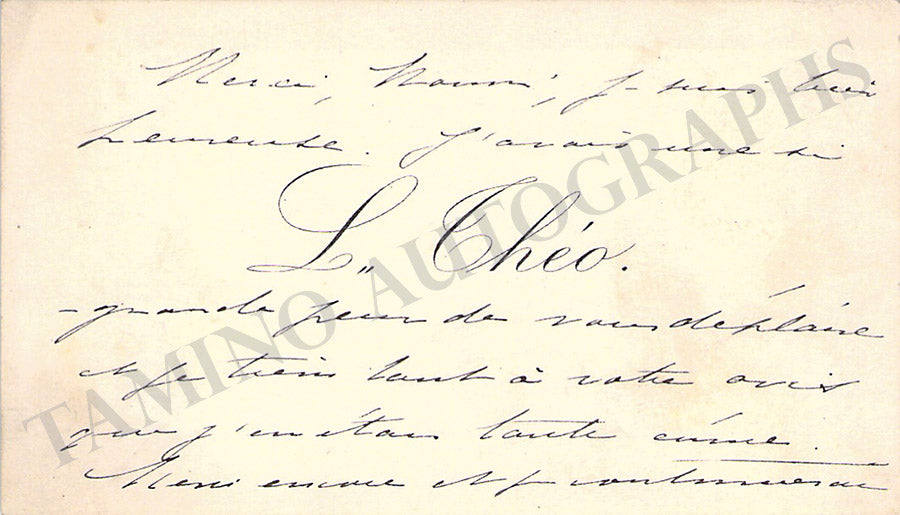 Merci, Mouni, je suis bien
heureuse. J'avais une si
L. Théo.
grande peur de vous déplaire
et je tiens tant à votre avis
que j'en étais toute émue.
Merci encore et je continuerai
TAMINO AUTOGRAPHS